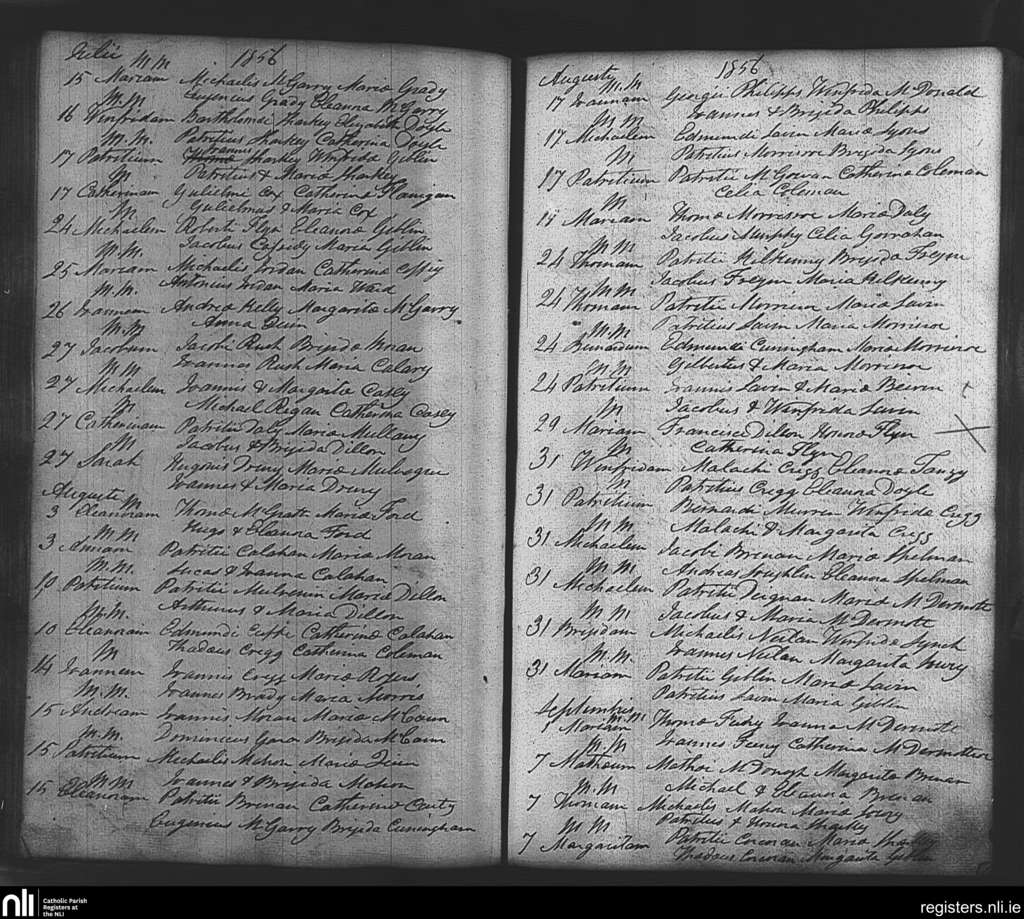 Julii 1856
M M
15 Mariam Michaelis McGarry Maria Grady
Eugenius Grady Eleanora McGarry
M.M
16 Winfridam Bartholomei Sharkey Elizabeth Doyle
M.M. Patritius Sharkey Catherina Doyle
17 Patritium Joannis Sharkey Winfrida Giblin
M Patritius & Maria Sharkey
17 Catherinam Gulielmi Cox Catherina Flanigan
M Gulielmus & Maria Cox
24 Michaelem Roberti Flyn Eleanora Giblin
M.M. Jacobus Cassidy Maria Giblin
25 Mariam Michaelis Jordan Catherina
M.M. Antonius Jordan Maria Ward
26 Joannem Andrea Kelly Margarita McGarry
M.M Anna Quin
27 Jacobum Jacobi Rush Brigida Moran
M.M Joannes Rush Maria Calary
27 Michaelem Joannis & Margarita Casey
M Michael Regan Catherina Casey
27 Catherinam Patritii Daly Maria Mullany
M Jacobus & Brigida Dillon
27 Sarah Hugonis Drury Maria
Joannes & Maria Drury
Augusti M
3 Eleanoram Thoma McGratt Maria Ford
M M Hugo & Eleanora Ford
3 Annam Patritii Calahan Maria Moran
M.M. Lucas & Joanna Calahan
10 Patritium Patritii Mulrenin Maria Dillon
M.M. Arthurus & Maria Dillon
10 Eleanoram Edmundi Catherina Calahan
M Thadaus Cregg Catherina Coleman
14 Joannem Joannis Cregg Maria Rogers
M.M. Joannes Brady Maria Morris
15 Andream Joannis Moran Maria McCown
M.M. Dominicus Gara Brigida McCown
15 Patritium Michaelis Mahon Maria Quin
M M Joannes & Brigida Mahon
15 Eleanoram Patritii Brenan Catherina
Eugenius McGarry Brigida Cuningham
Augusti 1856
M.M
17 Joannem Georgii Philipps Winfrida McDonald
M M Joannes & Brigida Philipps
17 Michaelem Edmundi Lavin Maria Lyons
M Patritius Morrisroe Brigida Lyons
17 Patritium Patritii McGowan Catherina Coleman
M Celia Coleman
Mariam Thoma Morrisroe Maria Daly
M M Jacobus Murphy Celia
24 Thomam Patritii Kilkenny Brigida
M M Jacobus Maria Kilkenny
24 Thomam Patritii Morrisroe Maria Lavin
M M Patritius Lavin Maria Morrisroe
24 Edmundi Cuningham Maria Morrisroe
M M Gilbertus & Maria Morrisroe
24 Patritium Joannis Lavin & Maria Beirne
M Jacobus & Winfrida Lavin
29 Mariam Francisci Dillon Honora Flyn
M Catherina Flyn
31 Winfridam Malachi Cregg Eleanora
M Patritius Cregg Eleanora Doyle
31 Patritium Bernardi Murren Winfrida Cregg
M M Malachi & Margarita Cregg
31 Michaelem Jacobi Brenan Maria Spelman
M M Andreas Eleanora Spelman
31 Michaelem Patritii Deignan Maria McDermott
M M Jacobus & Maria McDermott
31 Brigidam Michaelis Neilan Winfrida Lynch
M.M. Joannes Neilan Margarita
31 Mariam Patritii Giblin Maria Lavin
Patritius Lavin Maria Giblin
Septembris M M
Mariam Thoma Joanna McDermott
M.M Joannes Catherina McDermott
7 Mathaum Mathai McDonogh Margarita Brenan
M.M Michael & Eleanora Brenan
7 Thomam Michaelis Mahon Maria
M M Patritius & Honora Sharkey
7 Margaritam Patritii Corcoran Maria Sharkey
Thadaus Corcoran Margarita Giblin
nli
Catholic Parish
Registers at
the NLI
registers.nli.ie